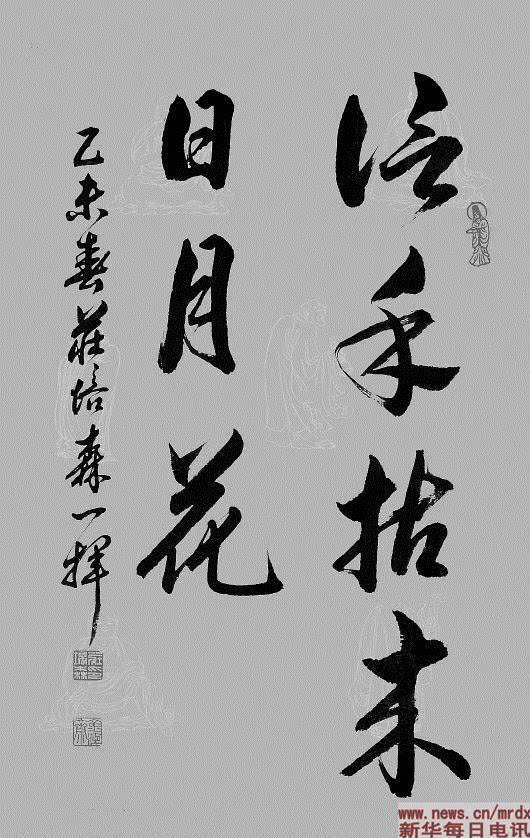 信手拈来
日月花
乙未春莊培森一揮
www.news.cn/mrdx
新华每日电讯